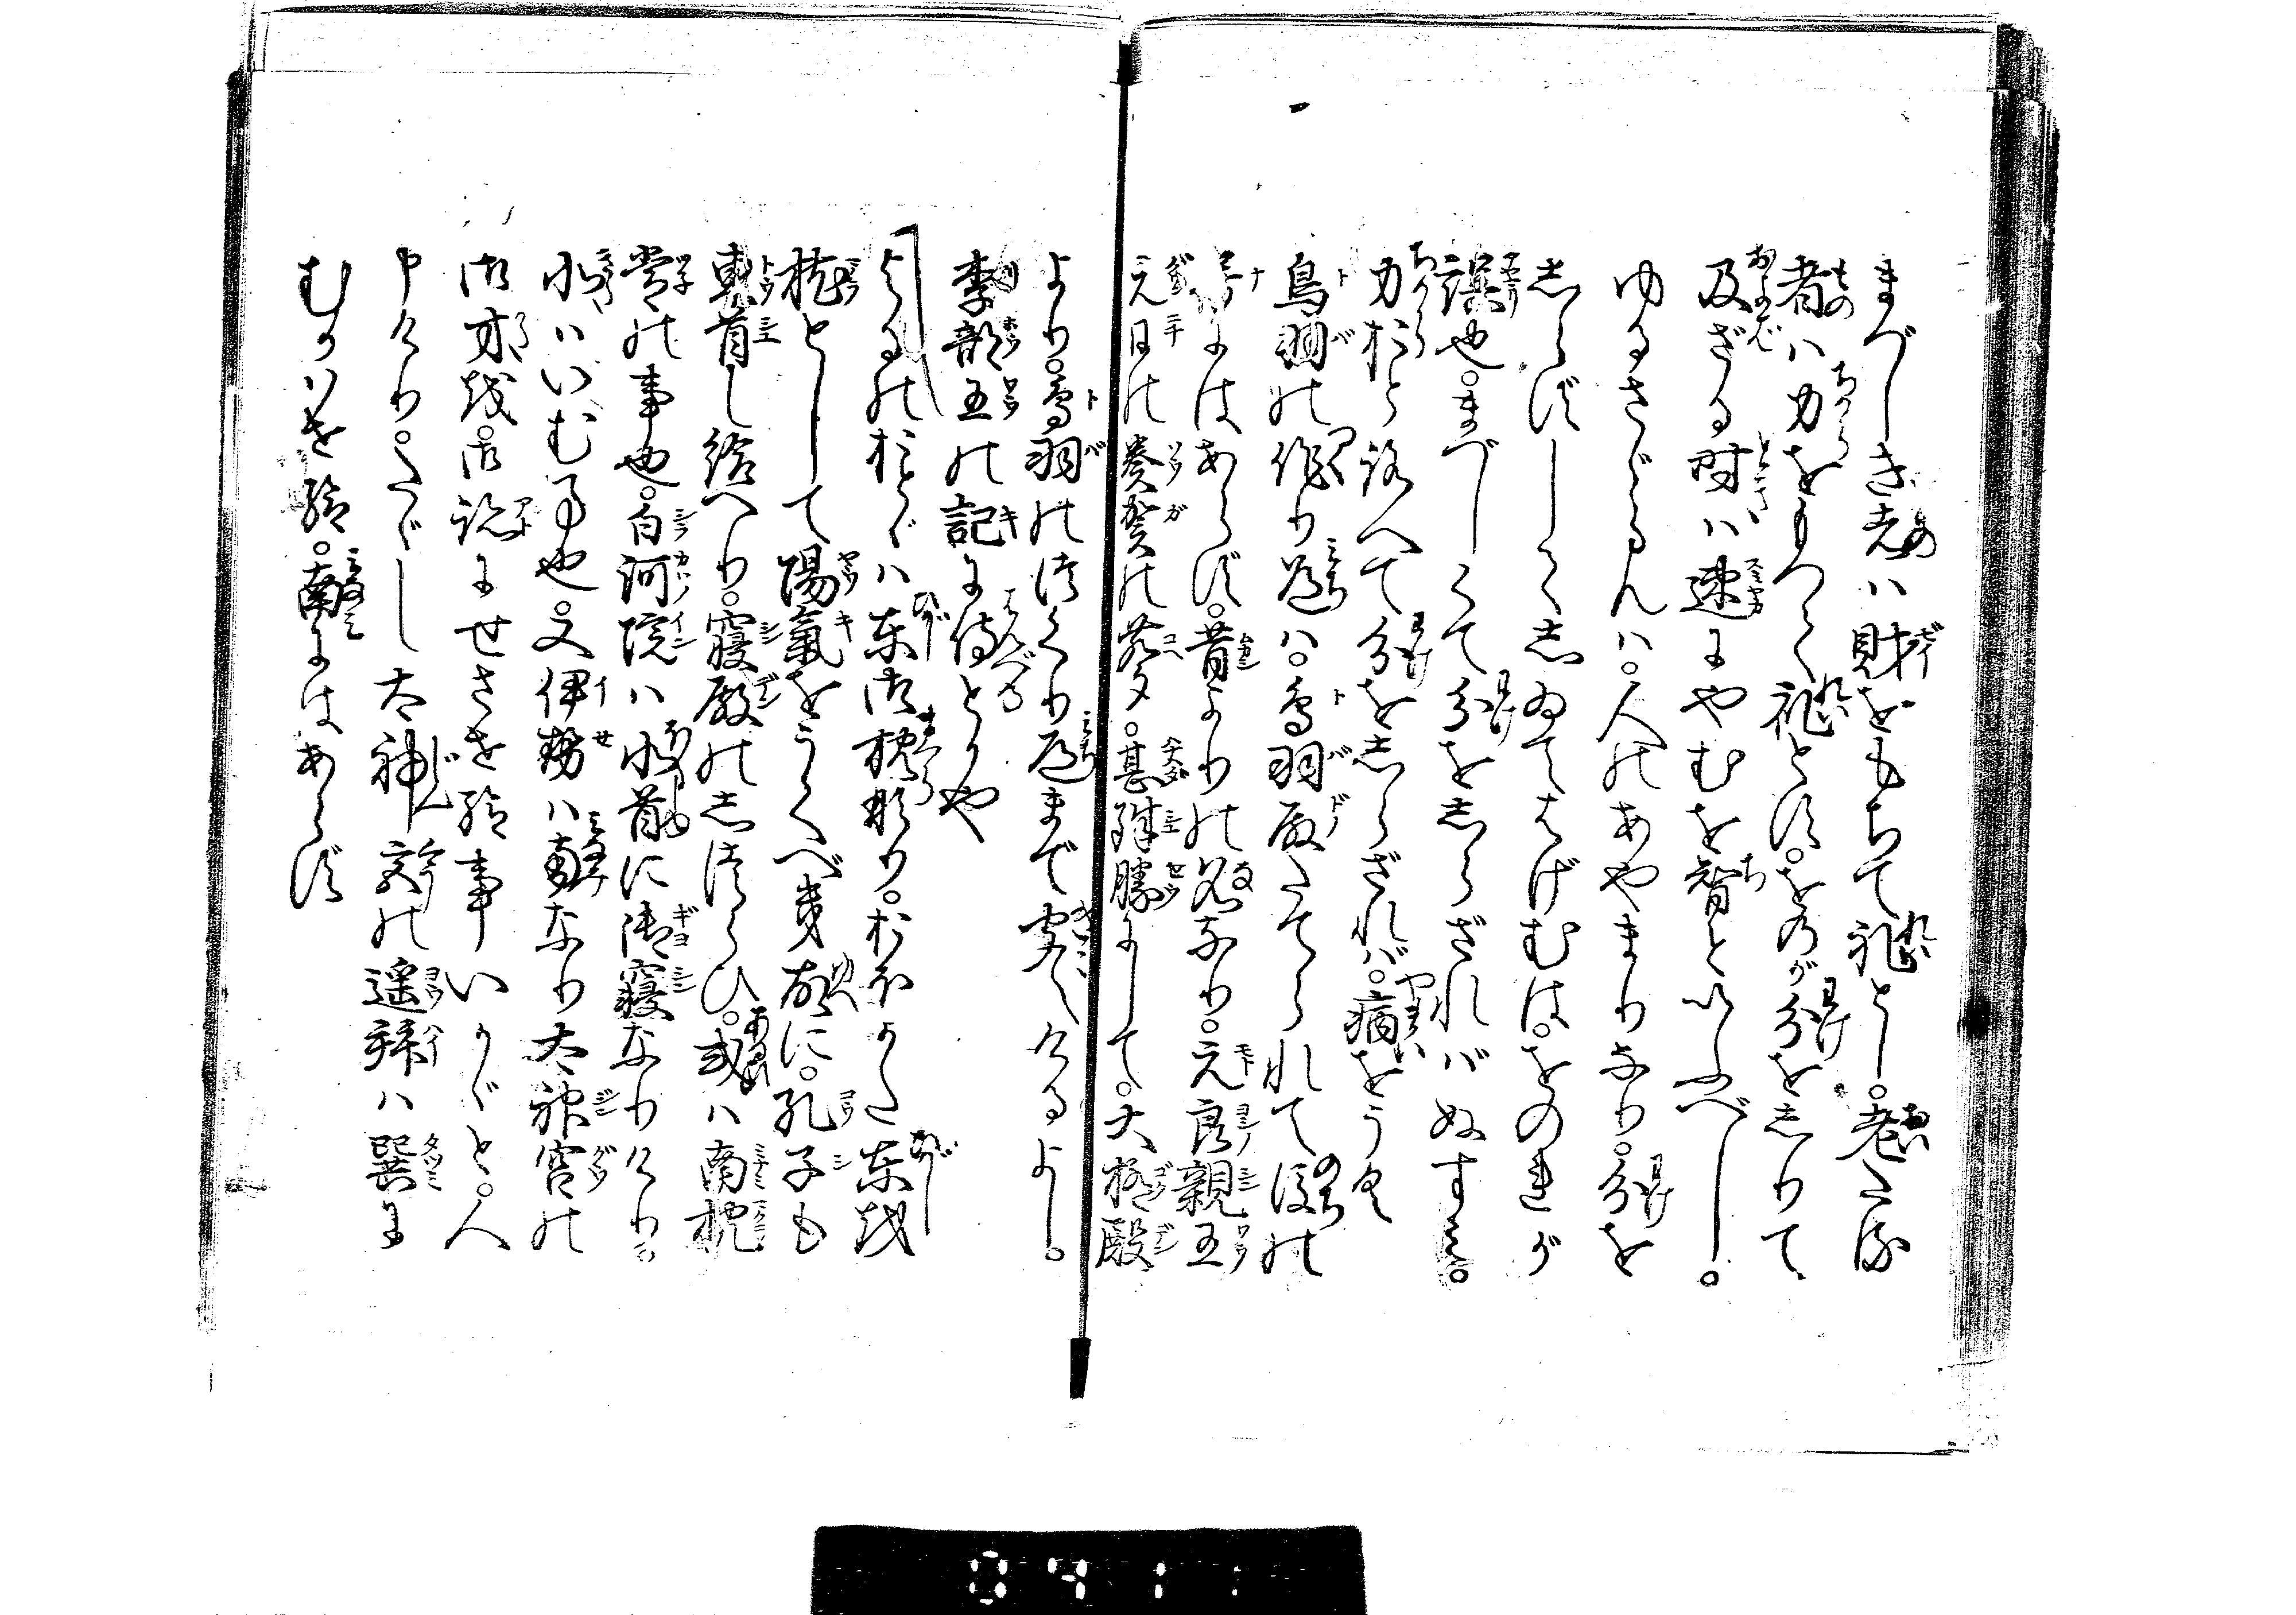 まづしき者ハ財をもちて礼とし。老たる
者ハ力をもつて礼とす。をのが分をしりて
及ざる時ハ速にやむを智といふべし。
ゆるさゞらんハ。人のあやまりなり。分を
しらずしてしゐてはげむは。をのれが
誤也。まづしくて分をしらざれバぬすみ。
力おとろへて分をしらざれバ。病をうく
鳥羽の作り道ハ。鳥羽殿たてられて後の
号にはあらず。昔よりの名なり。元良親王
元日の奏賀の声。甚殊勝にして。大極殿
より。鳥羽の作り道まで聞えけるよし。
李部王の記に侍とかや
よるのおとゞハ東御枕なり。おほかた東を
枕として陽気をうくべき故に。孔子も
東首し給へり。寝殿のしつらひ。或ハ南枕
常の事也。白河院ハ北首に御寝なりけり。
北ハいむ事也。又伊勢ハ南なり太神宮の
御方を。御跡にせさせ給事いかゞと。人
申けり。たゞし太神宮の遥拝ハ巽に
むかハせ給。南にはあらず
0411